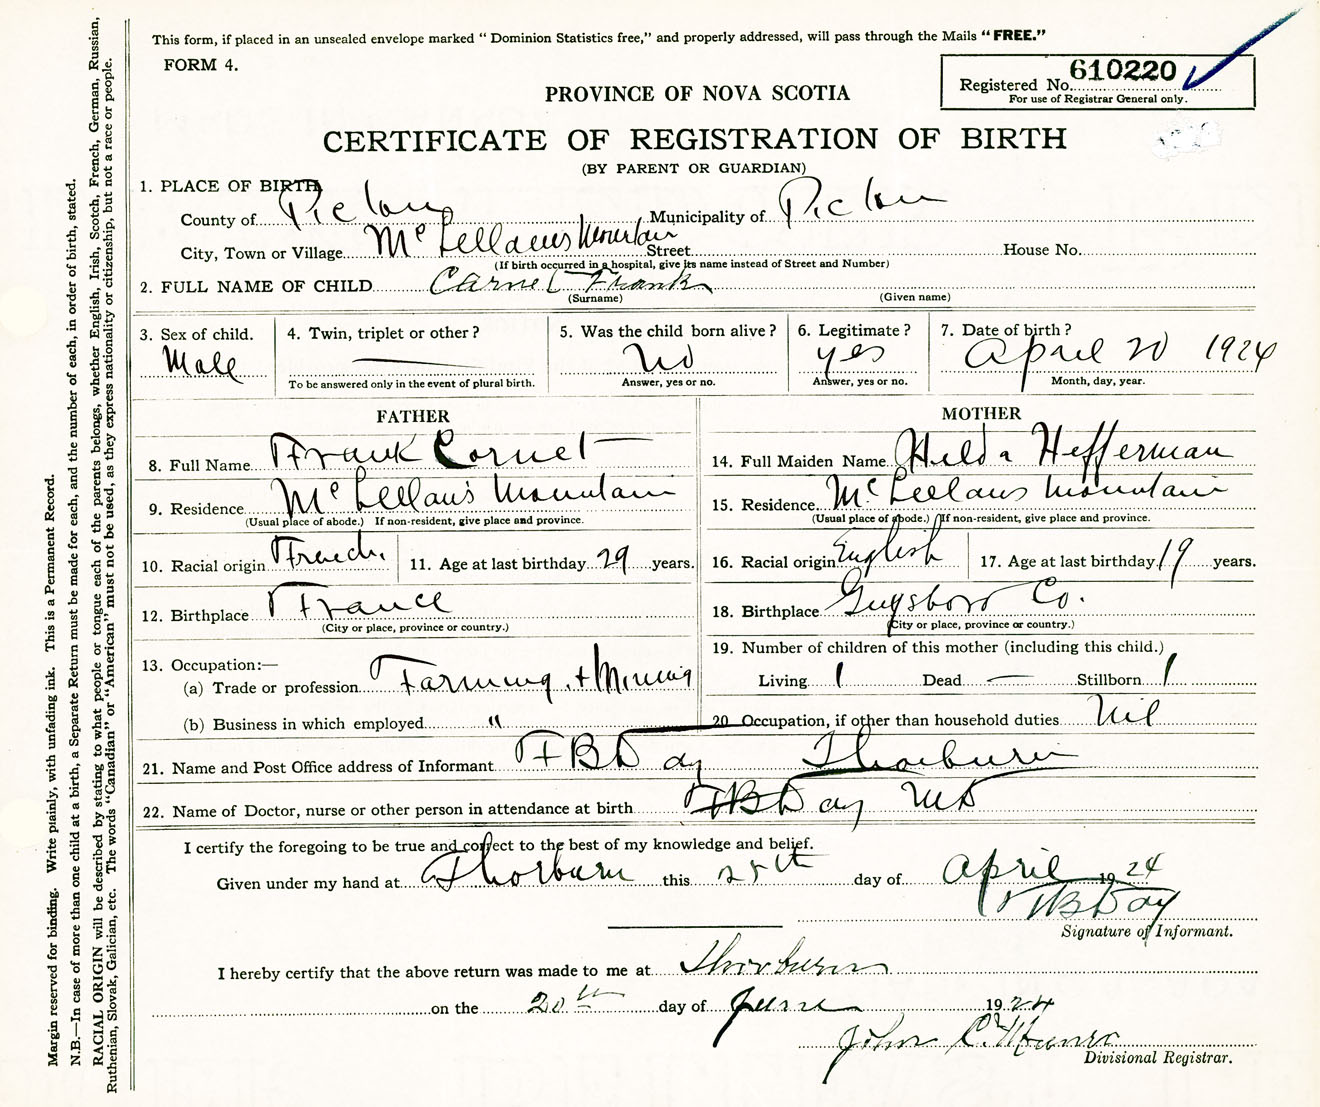 This form, if placed in an unsealed envelope marked " Dominion Statistics free," and properly addressed, will pass through the Mails "FREE."
FORM 4.
Registered No. 610220
For use of Registrar General only.
PROVINCE OF NOVA SCOTIA
CERTIFICATE OF REGISTRATION OF BIRTH
(BY PARENT OR GUARDIAN)
1. PLACE OF BIRTH
County of Pictou Municipality of Pictou
City, Town or Village Mc Lellans Mountain Street House No.
(If birth occurred in a hospital, give its name instead of Street and Number)
2. FULL NAME OF CHILD Frank
(Surname) (Given name)
3. Sex of child. 4. Twin, triplet or other ? 5. Was the child born alive ? 6. Legitimate ? 7. Date of birth ?
Male — No yes April 20 1924
To be answered only in the event of plural birth. Answer, yes or no. Answer, yes or no. Month, day, year.
FATHER MOTHER
8. Full Name Frank Cornet 14. Full Maiden Name Hilda Hefferman
9. Residence Mc Lellan's Mountain 15. Residence Mc Lellans Mountain
(Usual place of abode.) If non-resident, give place and province. (Usual place of abode.) If non-resident, give place and province.
10. Racial origin French 11. Age at last birthday 29 years. 16. Racial origin English 17. Age at last birthday 19 years.
12. Birthplace France 18. Birthplace Guysboro Co.
(City or place, province or country.) (City or place, province or country.)
13. Occupation:— 19. Number of children of this mother (including this child.)
(a) Trade or profession Farming + Mining Living 1 Dead — Stillborn 1
(b) Business in which employed " 20 Occupation, if other than household duties Nil
21. Name and Post Office address of Informant F B Day Thorburn
22. Name of Doctor, nurse or other person in attendance at birth F B Day MD
I certify the foregoing to be true and correct to the best of my knowledge and belief.
Given under my hand at Thorburn this 28th day of April 1924
F B Day
Signature of Informant.
I hereby certify that the above return was made to me at Thorburn
on the 20th day of June 1924
John C. Munro
Divisional Registrar.
Margin reserved for binding. Write plainly, with unfading ink. This is a Permanent Record.
N.B.—In case of more than one child at a birth, a Separate Return must be made for each, and the number of each, in order of birth, stated.
RACIAL ORIGIN will be described by stating to what people or tongue each of the parents belongs, whether English, Irish, Scotch, French, German, Russian,
Ruthenian, Slovak, Galician, etc. The words "Canadian" or "American" must not be used, as they express nationality or citizenship, but not a race or people.